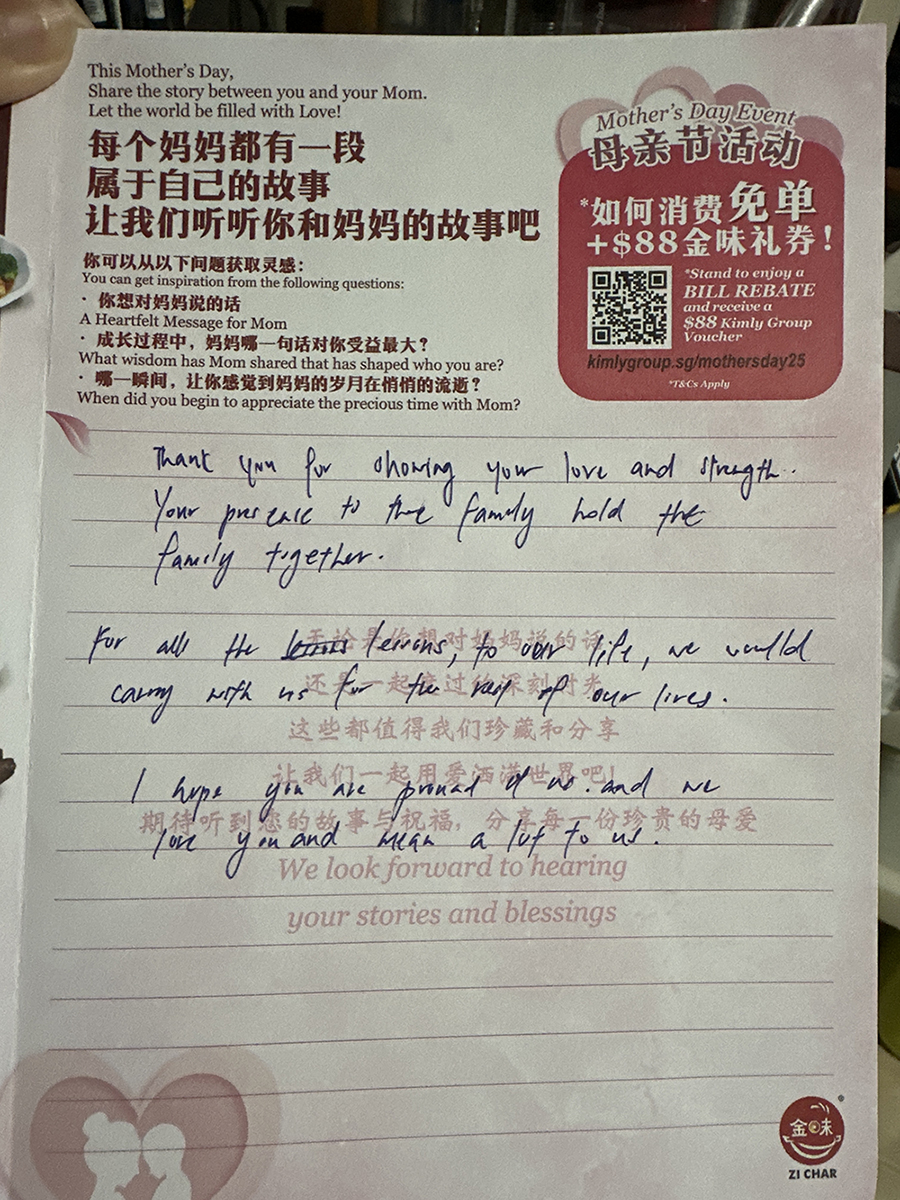 This Mother's Day,
Share the story between you and your Mom.
Let the world be filled with Love!
每个妈妈都有一段
属于自己的故事
让我们听听你和妈妈的故事吧
你可以从以下问题获取灵感：
You can get inspiration from the following questions:
· 你想对妈妈说的话
A Heartfelt Message for Mom
· 成长过程中，妈妈哪一句话对你受益最大？
What wisdom has Mom shared that has shaped who you are?
· 哪一瞬间，让你感觉到妈妈的岁月在悄悄的流逝？
When did you begin to appreciate the precious time with Mom?
Mother's Day Event
母亲节活动
*如何消费免单
+$88金味礼券！
*Stand to enjoy a
BILL REBATE
and receive a
$88 Kimly Group
Voucher
kimlygroup.sg/mothersday25
*T&Cs Apply
Thank you for showing your love and strength..
Your presence to the family hold the
family together.
无论是你想对妈妈说的话
For all the lessons, to our life, we would
还是一起度过的深刻时光
carry with us for the rest of our lives.
这些都值得我们珍藏和分享
让我们一起用爱洒满世界吧！
I hope you are proud of us. and we
期待听到您的故事与祝福，分享每一份珍贵的母爱
love you and mean a lot to us.
We look forward to hearing
your stories and blessings
金味
ZI CHAR